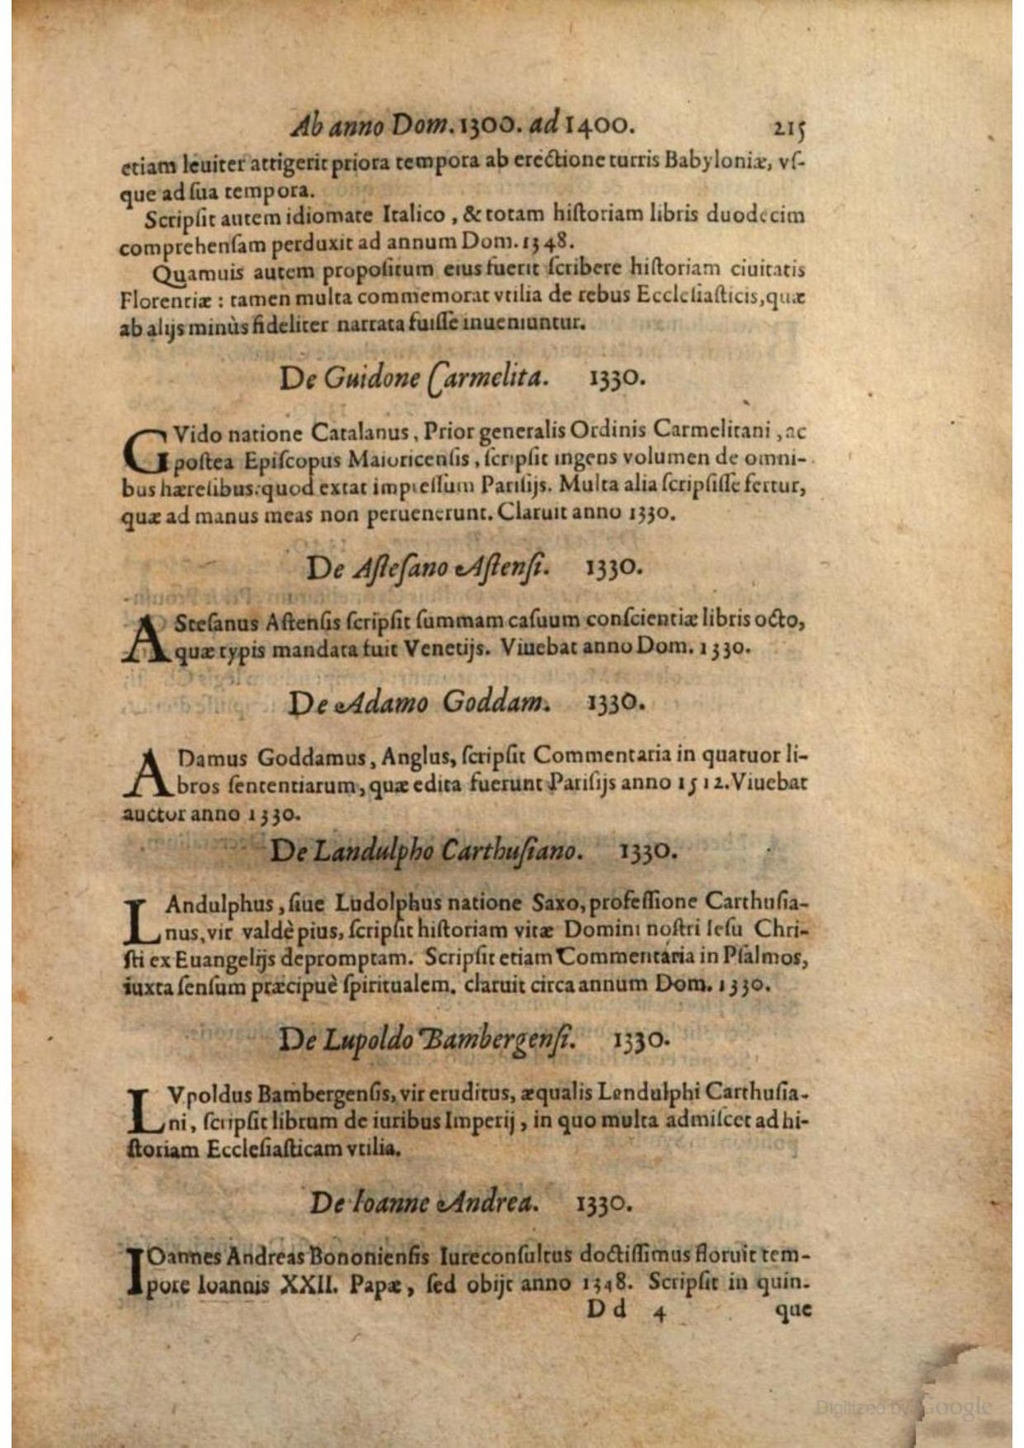 Ab anno Dom. 1300. ad 1400. 215
etiam leuiter attigerit priora tempora ab erectione turris Babyloniæ, vſ-
que ad ſua tempora.
Scripſit autem idiomate Italico, & totam hiſtoriam libris duodecim
comprehenſam perduxit ad annum Dom. 1348.
Quamuis autem propoſitum eius fuerit ſcribere hiſtoriam ciuitatis
Florentiæ : tamen multa commemorat vtilia de rebus Eccleſiaſticis, quæ
ab alijs minùs fideliter narrata fuiſſe inueniuntur.
De Guidone Carmelita. 1330.
GVido natione Catalanus, Prior generalis Ordinis Carmelitani, ac
poſtea Epiſcopus Maioricenſis, ſcripſit ingens volumen de omni-
bus hæreſibus: quod extat impreſſum Pariſijs. Multa alia ſcripſiſſe fertur,
quæ ad manus meas non peruenerunt. Claruit anno 1330.
De Aſteſano Aſtenſi. 1330.
ASteſanus Aſtenſis ſcripſit ſummam caſuum conſcientiæ libris octo,
quæ typis mandata fuit Venetijs. Viuebat anno Dom. 1330.
De Adamo Goddam. 1330.
ADamus Goddamus, Anglus, ſcripſit Commentaria in quatuor li-
bros ſententiarum, quæ edita fuerunt Pariſijs anno 1512. Viuebat
auctor anno 1330.
De Landulpho Carthuſiano. 1330.
LAndulphus, ſiue Ludolphus natione Saxo, profeſſione Carthuſia-
nus, vir valdè pius, ſcripſit hiſtoriam vitæ Domini noſtri Ieſu Chri-
ſti ex Euangelijs depromptam. Scripſit etiam Commentaria in Pſalmos,
iuxta ſenſum præcipuè ſpiritualem. claruit circa annum Dom. 1330.
De Lupoldo Bambergenſi. 1330.
LVpoldus Bambergenſis, vir eruditus, æqualis Landulphi Carthuſia-
ni, ſcripſit librum de iuribus Imperij, in quo multa admiſcet ad hi-
ſtoriam Eccleſiaſticam vtilia.
De Ioanne Andrea. 1330.
IOannes Andreas Bononienſis Iureconſultus doctiſſimus floruit tem-
pore Ioannis XXII. Papæ, ſed obijt anno 1348. Scripſit in quin-
Dd 4 que
Digitized by Google